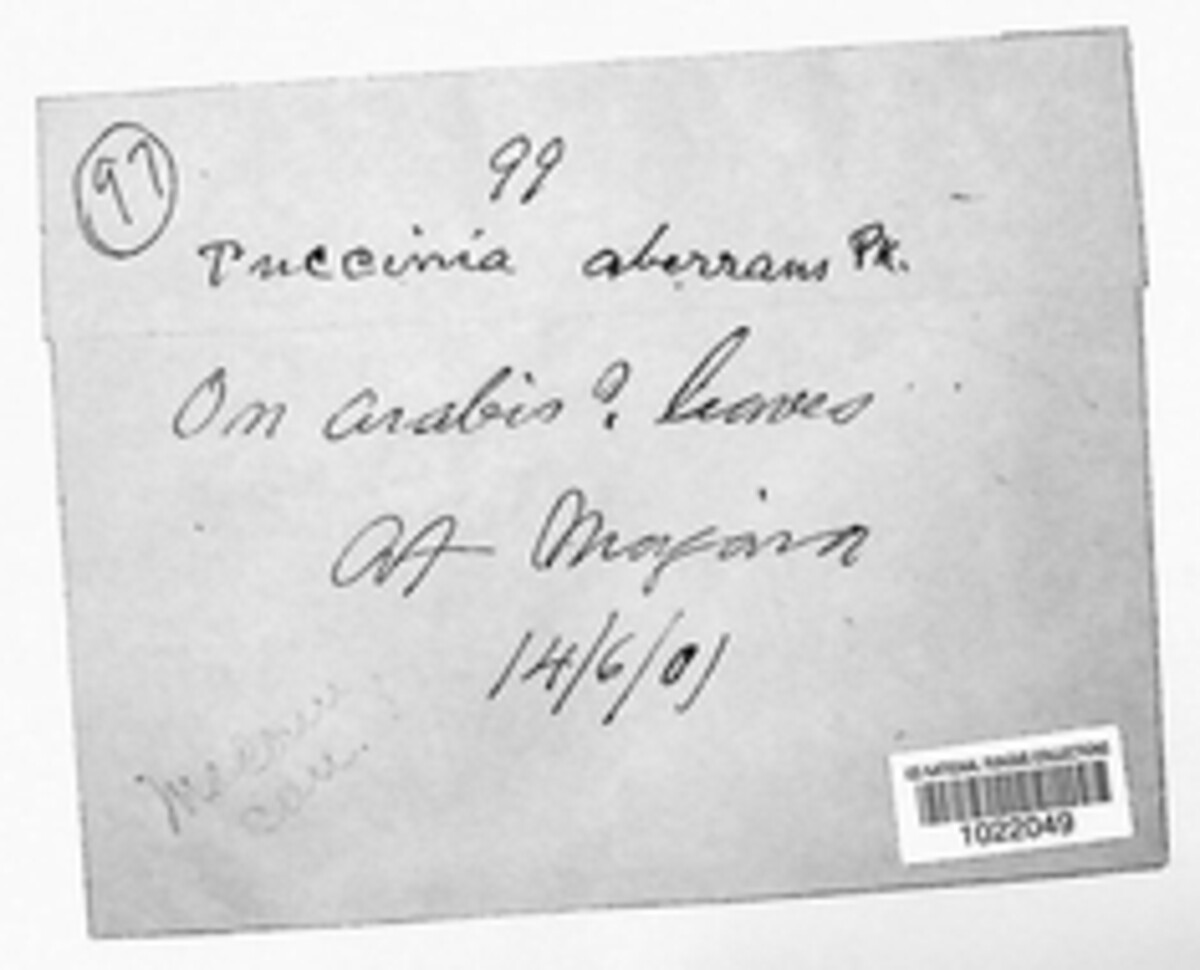 97
99
Puccinia aberrans Pk.
On arabis? leaves
At
14/6/01
US NATIONAL FUNGUS COLLECTIONS
1022049